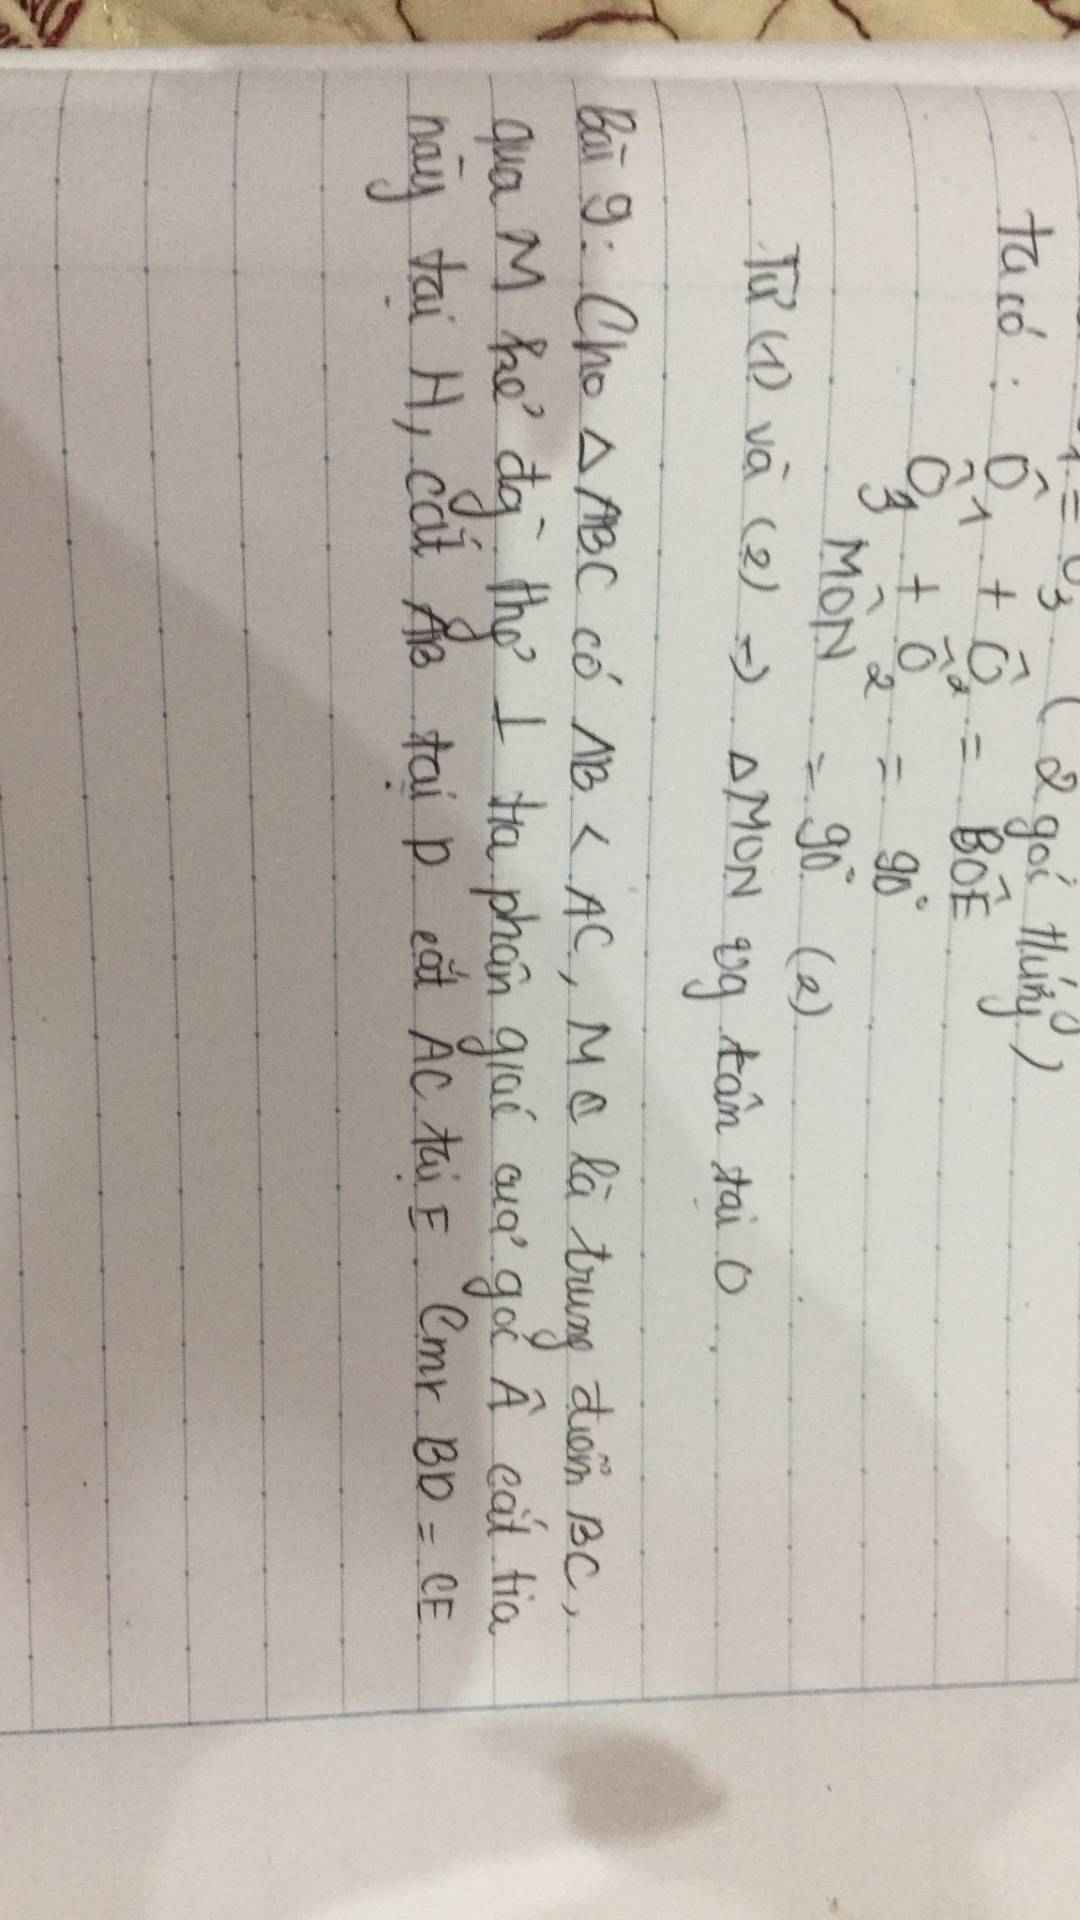 Ta có : Ô1 + Ô2 = BÔE
Ô3 + Ô2 = 90°
MÔN = 90° (2)
Từ (1) và (2) => ΔMON vg tân tại O
Bài 9: Cho ΔABC có AB < AC, M là trung điểm BC,
qua M kẻ đg` thẳ ⊥ tia phân giác của góc Â cắt tia
này tại H, cắt AB tại D cắt AC tại E Cmr BD = CE